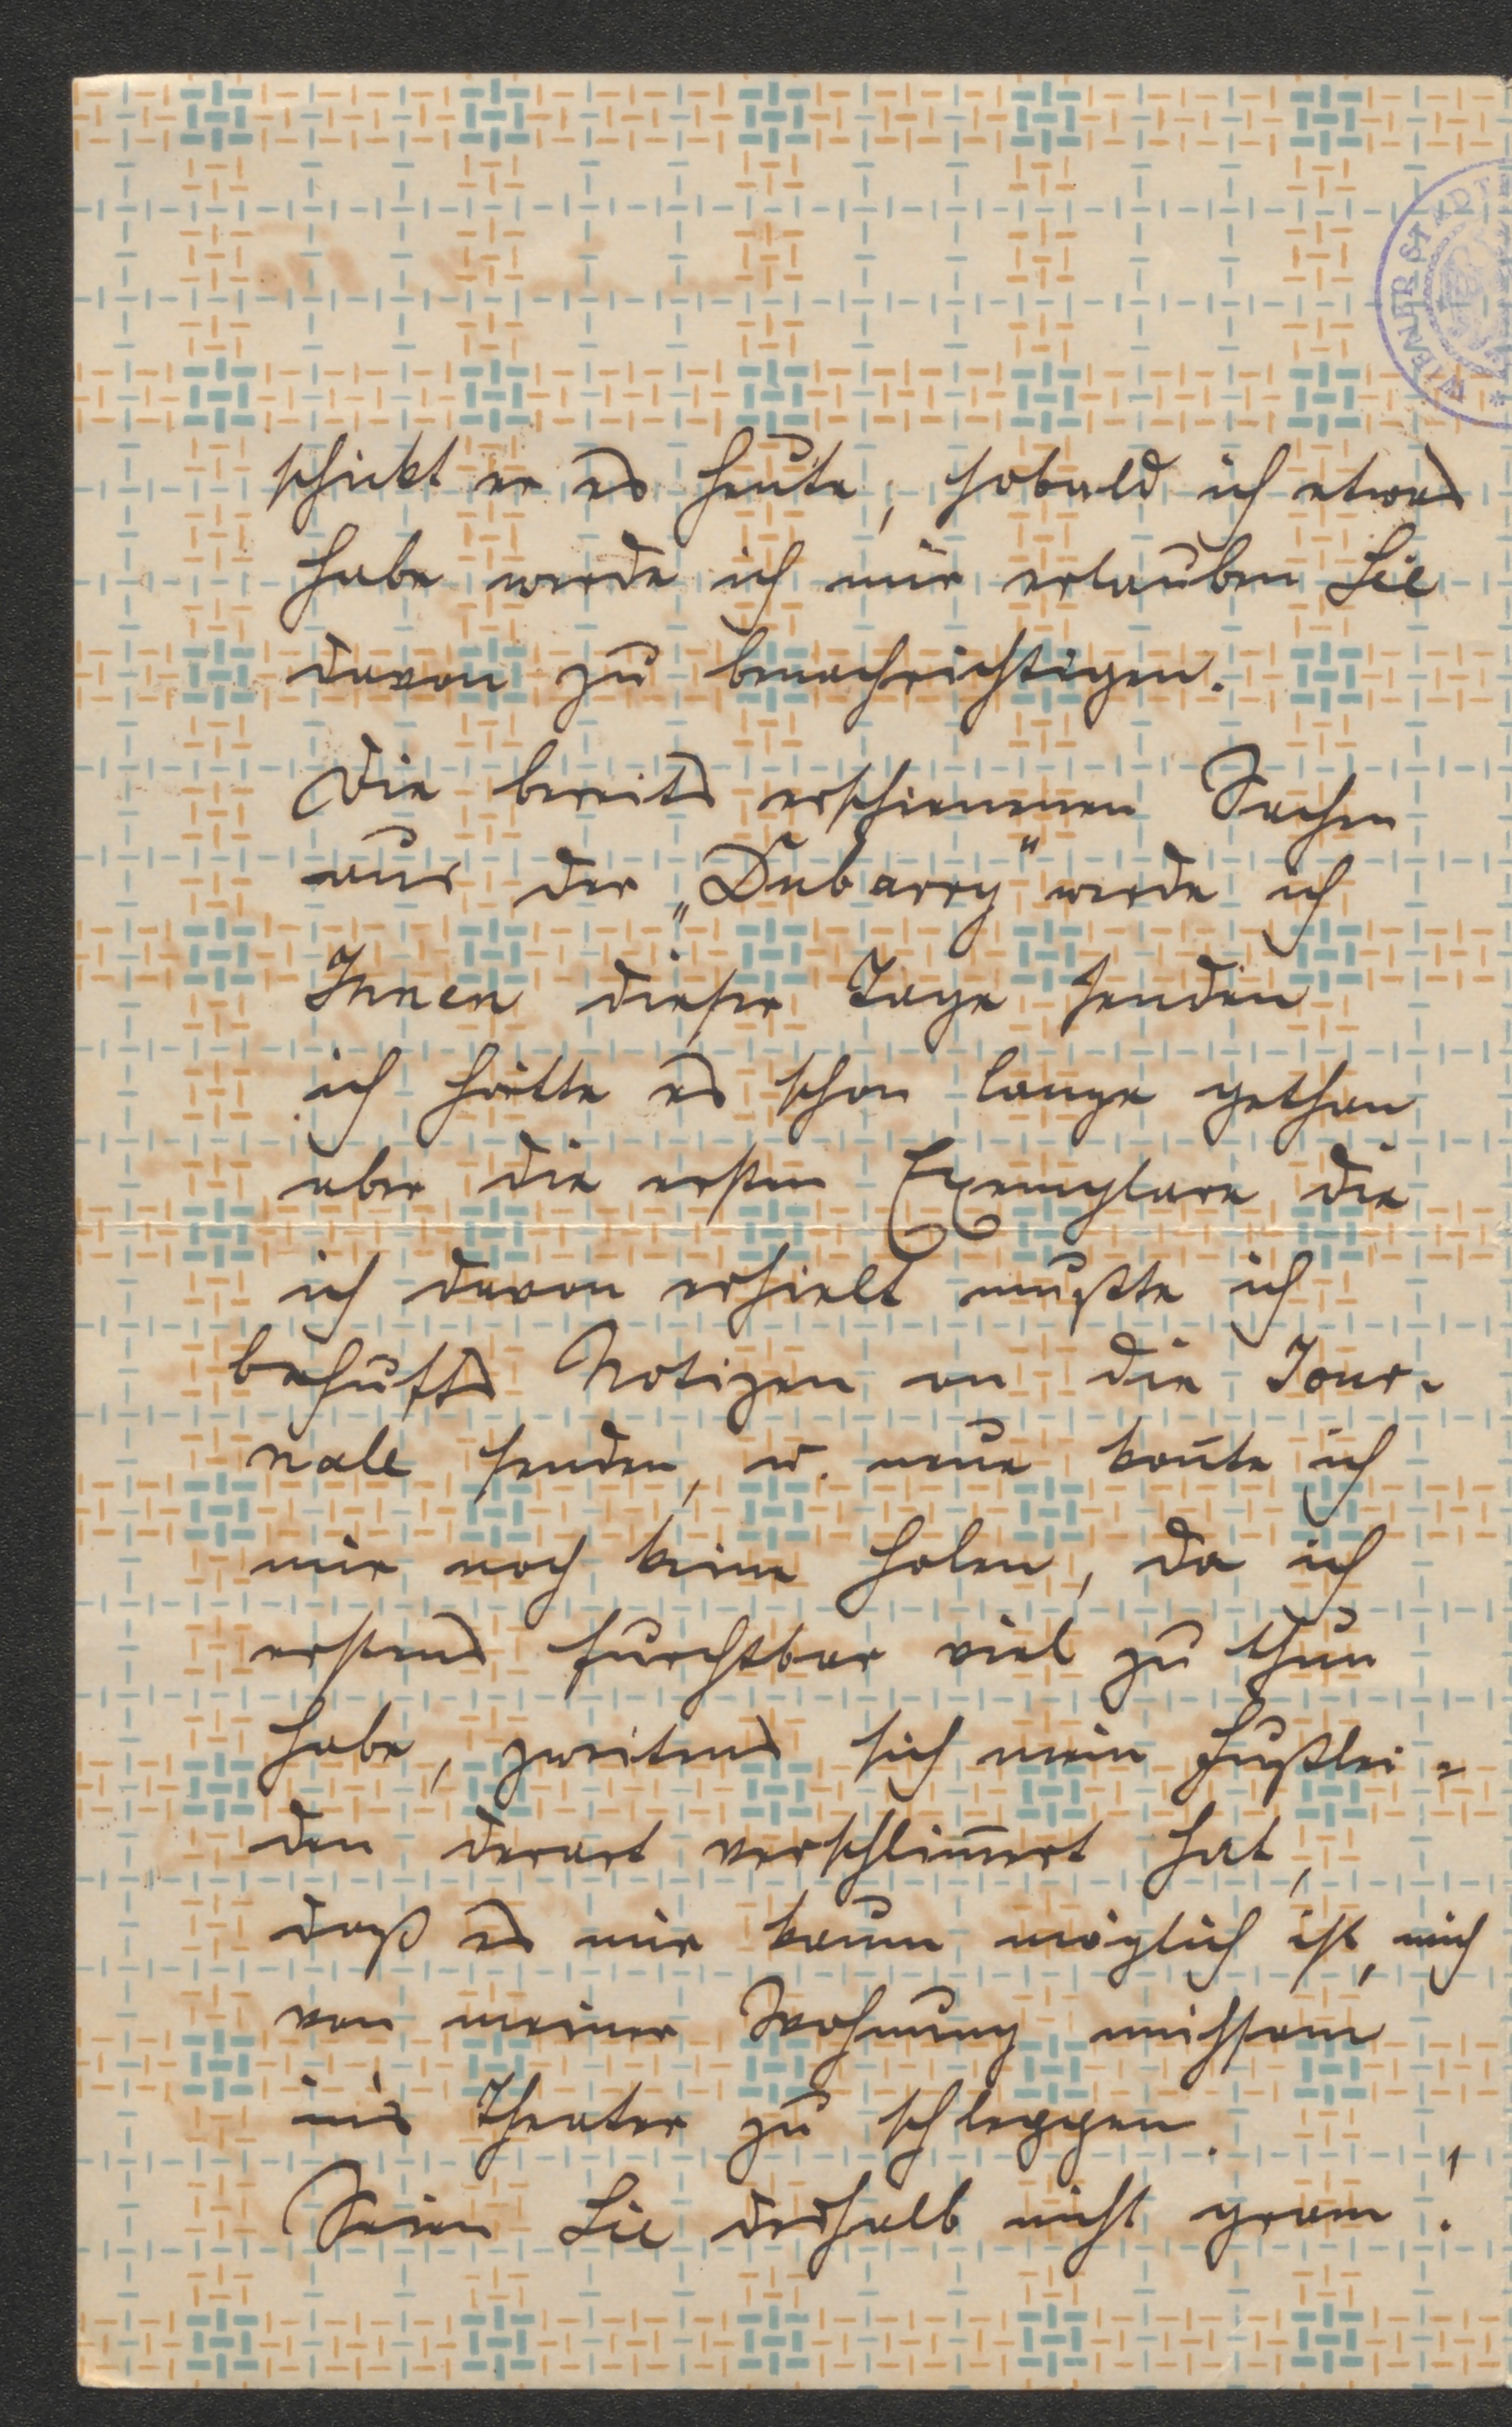 WIENER STADT
schickt er es heute, sobald ich etwas
habe werde ich mir erlauben Sie
davon zu benachrichtigen.
Die bereits erschienenen Sachen
aus der „Dubarry" werde ich
Ihnen dieser Tage senden
ich hätte es schon lange gethan
aber die ersten Exemplare die
ich davon erhielt mußte ich
behufs Notizen an die Jour-
nale senden, u. neue kon̄te ich
mir noch keine holen, da ich
erstens furchtbar viel zu thun
habe, zweitens sich mein Fußlei-
den derart verschlim̄ert hat,
daß es mir kaum möglich ist, mich
von meiner Wohnung mühsam
in's Theater zu schleppen.
Seien Sie deshalb nicht gram!